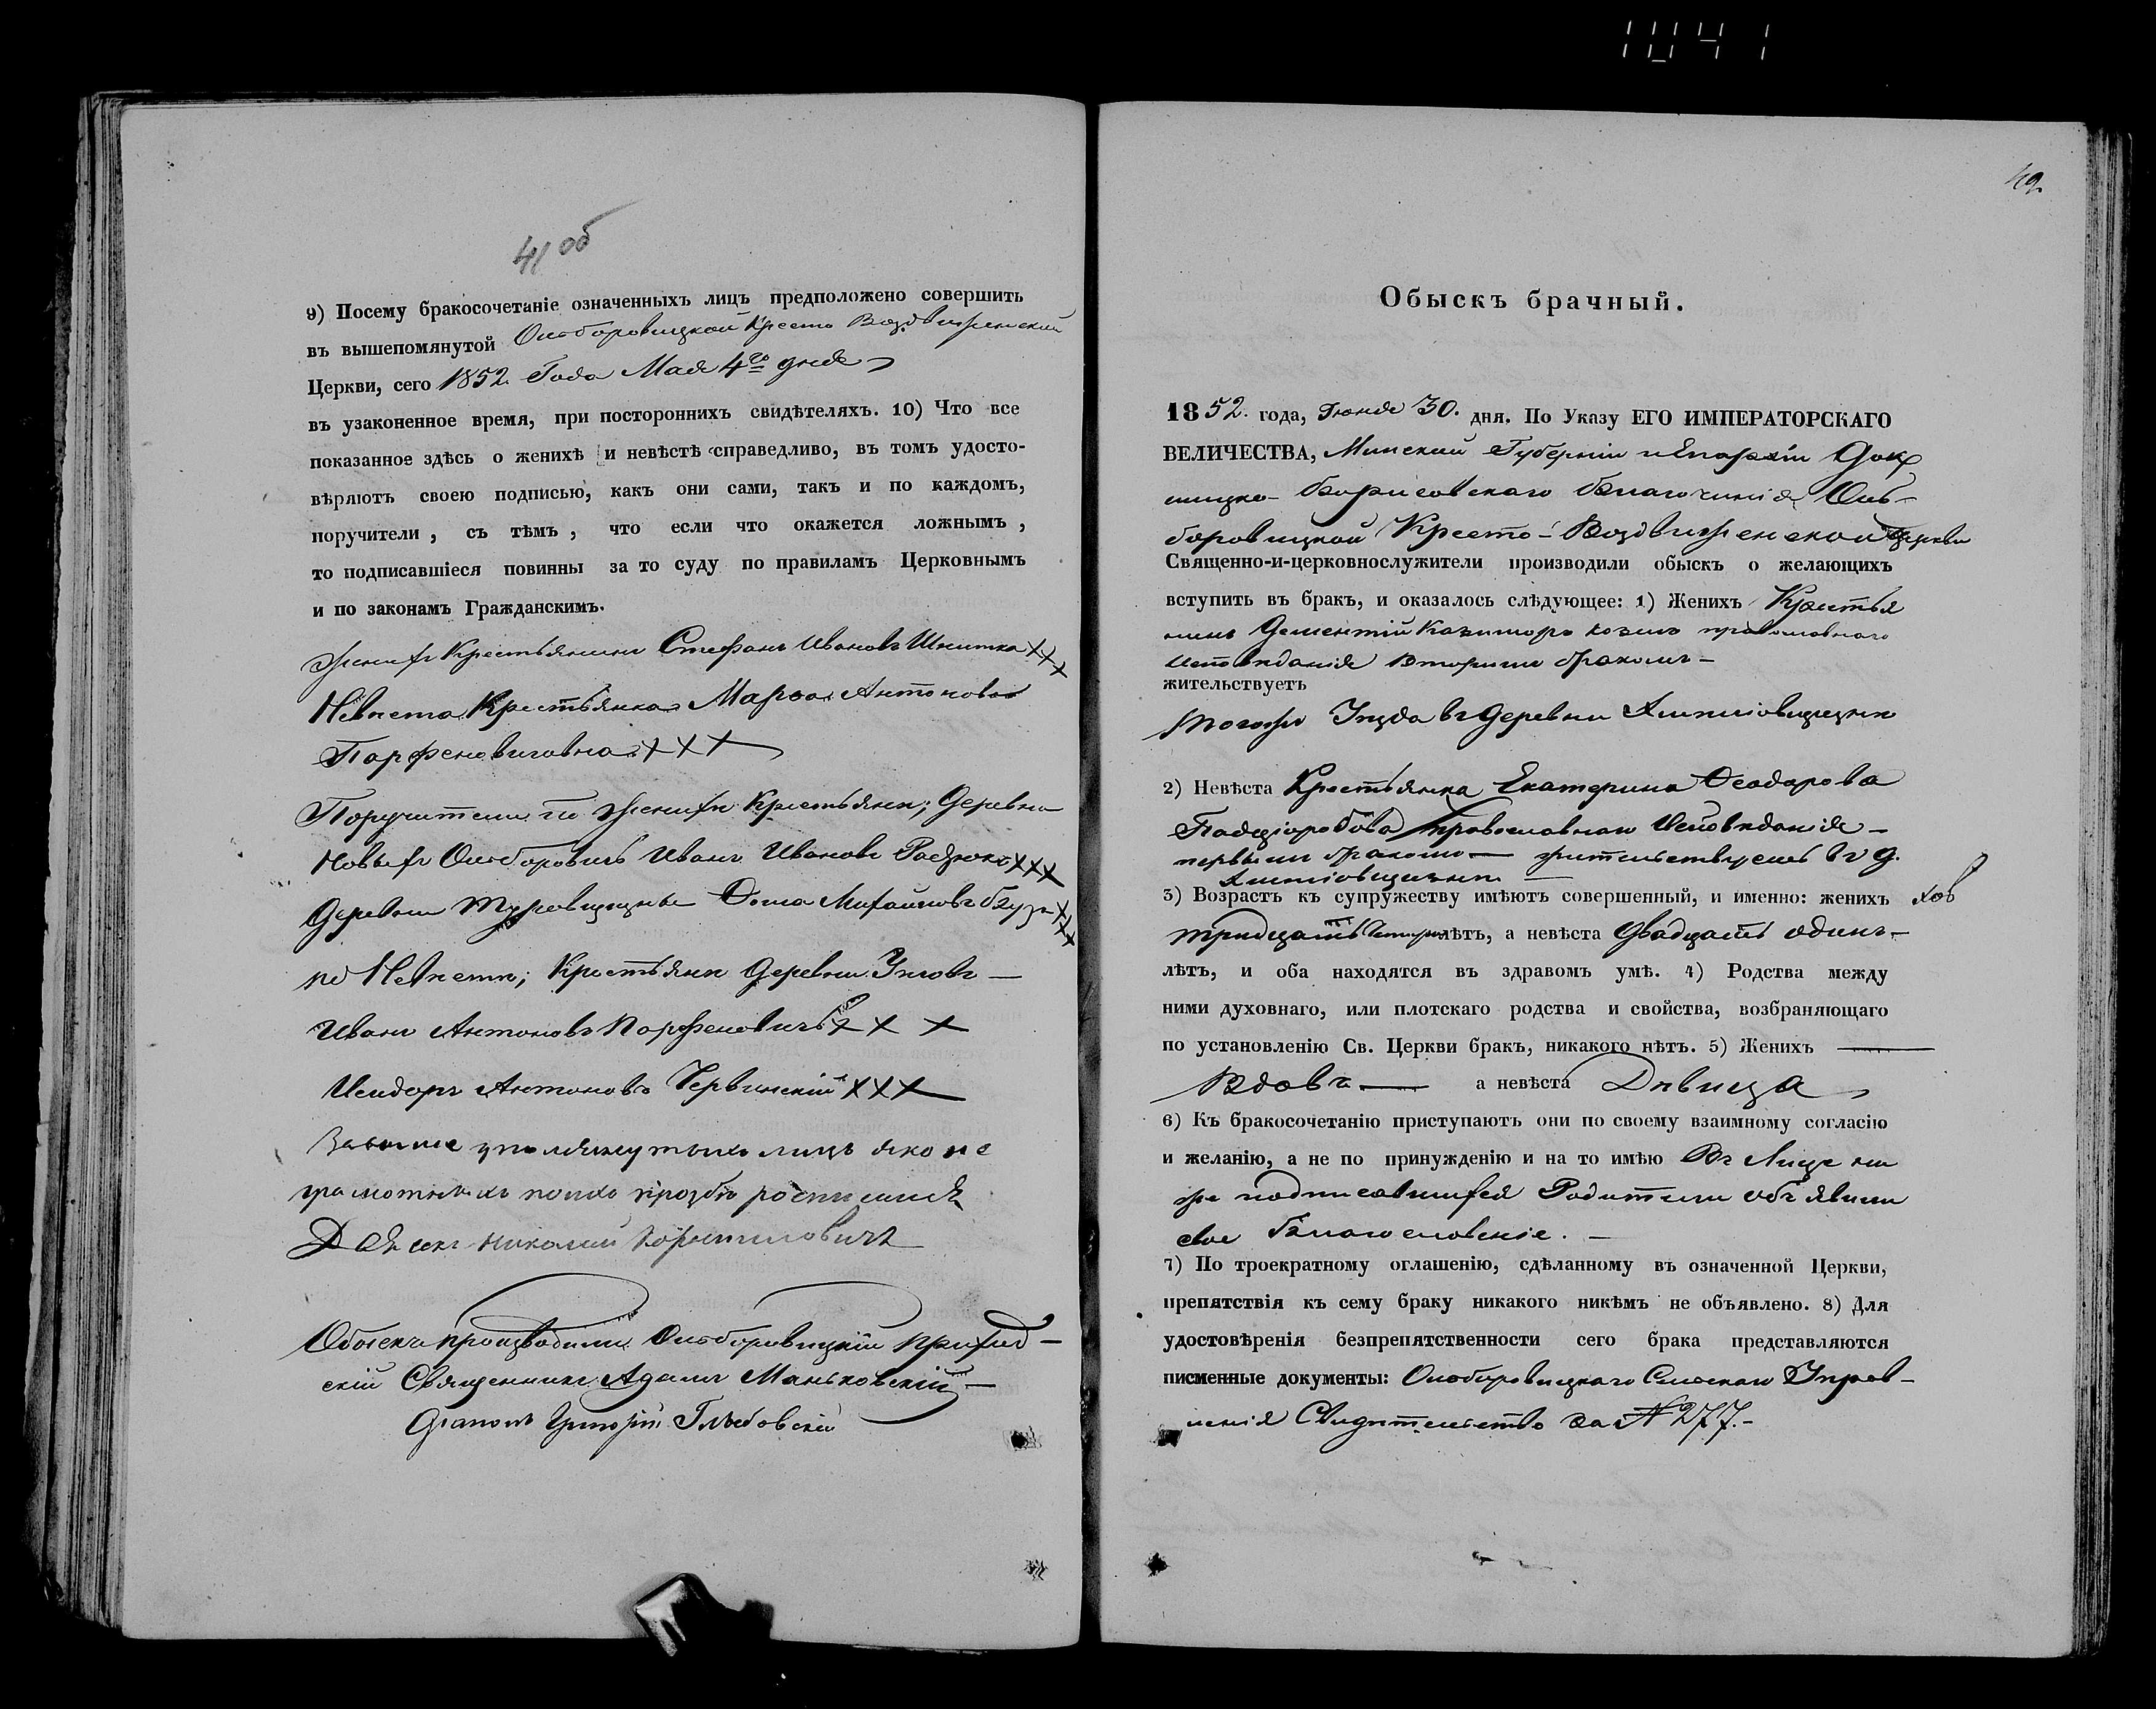 1041
41 об
9) Посему бракосочетаніе означенныхъ лицъ предположено совершить
въ вышепомянутой Крестовоздвиженской
Церкви, сего 1852 Года Мая 4го дня
въ узаконенное время, при постороннихъ свидѣтеляхъ. 10) Что все
показанное здѣсь о женихѣ и невѣстѣ справедливо, въ томъ удосто-
вѣряютъ своею подписью, какъ они сами, такъ и по каждомъ,
поручители, съ тѣмъ, что если что окажется ложнымъ,
то подписавшіеся повинны за то суду по правиламъ Церковнымъ
и по законамъ Гражданскимъ.
Женихъ Крестьянинъ Стефанъ Ивановъ Шнитка ХХХ
Невѣста Крестьянка Марѳа Антонова
Парфеновичовна ХХХ
Поручители по женихѣ Крестьяне; Деревни
Новыхъ Иванъ Ивановъ ХХХ
Деревни Ѳома Михайловъ ХХХ
по Невѣстѣ; Крестьяне Деревни
Иванъ Антоновъ Парфеновичъ ХХХ
Исидоръ Антоновъ Червинскій ХХХ
За выше упомянутыхъ лицъ яко не
грамотныхъ по ихъ прозбѣ росписался
Николай Корнилович
Обыскъ производили Приход-
скій Священникъ Адамъ Маньковскій
Григорій Глѣбовскій
Обыскъ брачный.
1852. года, Іюня 30. дня. По Указу ЕГО ИМПЕРАТОРСКАГО
ВЕЛИЧЕСТВА, Минской Губерніи и Епархіи Док
шицко-Борисовскаго благочинія
Кресто-Воздвиженской Церкви
Священно-и-церковнослужители производили обыскъ о желающихъ
вступить въ бракъ, и оказалось слѣдующее: 1) Женихъ Крестья
нинъ Дементій православнаго
исповѣданія вторымъ бракомъ -
жительствуетъ
въ Деревни
2) Невѣста Крестьянка Екатерина Ѳеодорова
православнаго Исповѣданія -
первымъ бракомъ - жительствуетъ въ д.
3) Возрастъ къ супружеству имѣютъ совершенный, и именно: женихъ
тридцать четыре лѣтъ, а невѣста двадцать одинъ -
лѣтъ, и оба находятся въ здравомъ умѣ. 4) Родства между
ними духовнаго, или плотскаго родства и свойства, возбраняющаго
по установленію Св. Церкви бракъ, никакого нѣтъ. 5) Женихъ
Вдовъ а невѣста Дѣвица
6) Къ бракосочетанію приступаютъ они по своему взаимному согласію
и желанію, а не по принужденію и на то имѣю Въ Лице ни
же подписавшихся Родители объявили
свое благословеніе. -
7) По троекратному оглашенію, сдѣланному въ означенной Церкви,
препятствія къ сему браку никакого никѣмъ не объявлено. 8) Для
удостовѣренія безпрепятственности сего брака представляются
писменные документы: Управ-
ленія Свидѣтельство за № 277. -